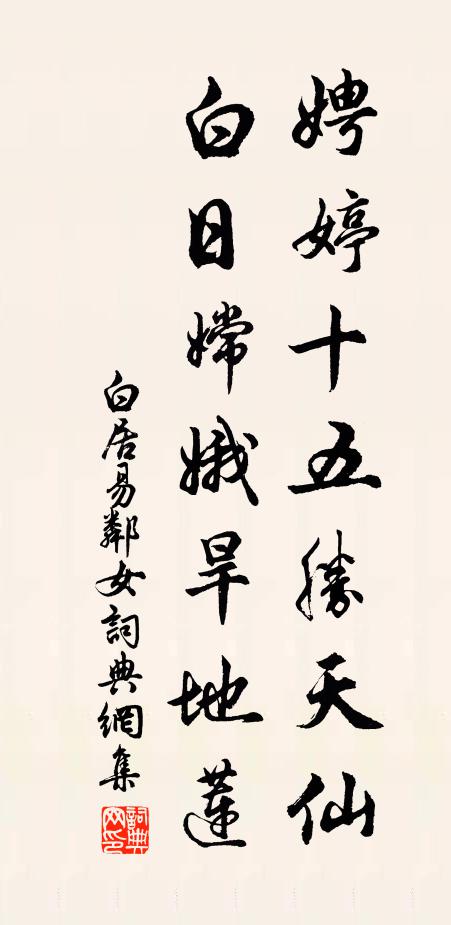 娉婷十五勝天仙
白日嫦娥旱地蓮
白居易鄰女詞典網集
詞典網印